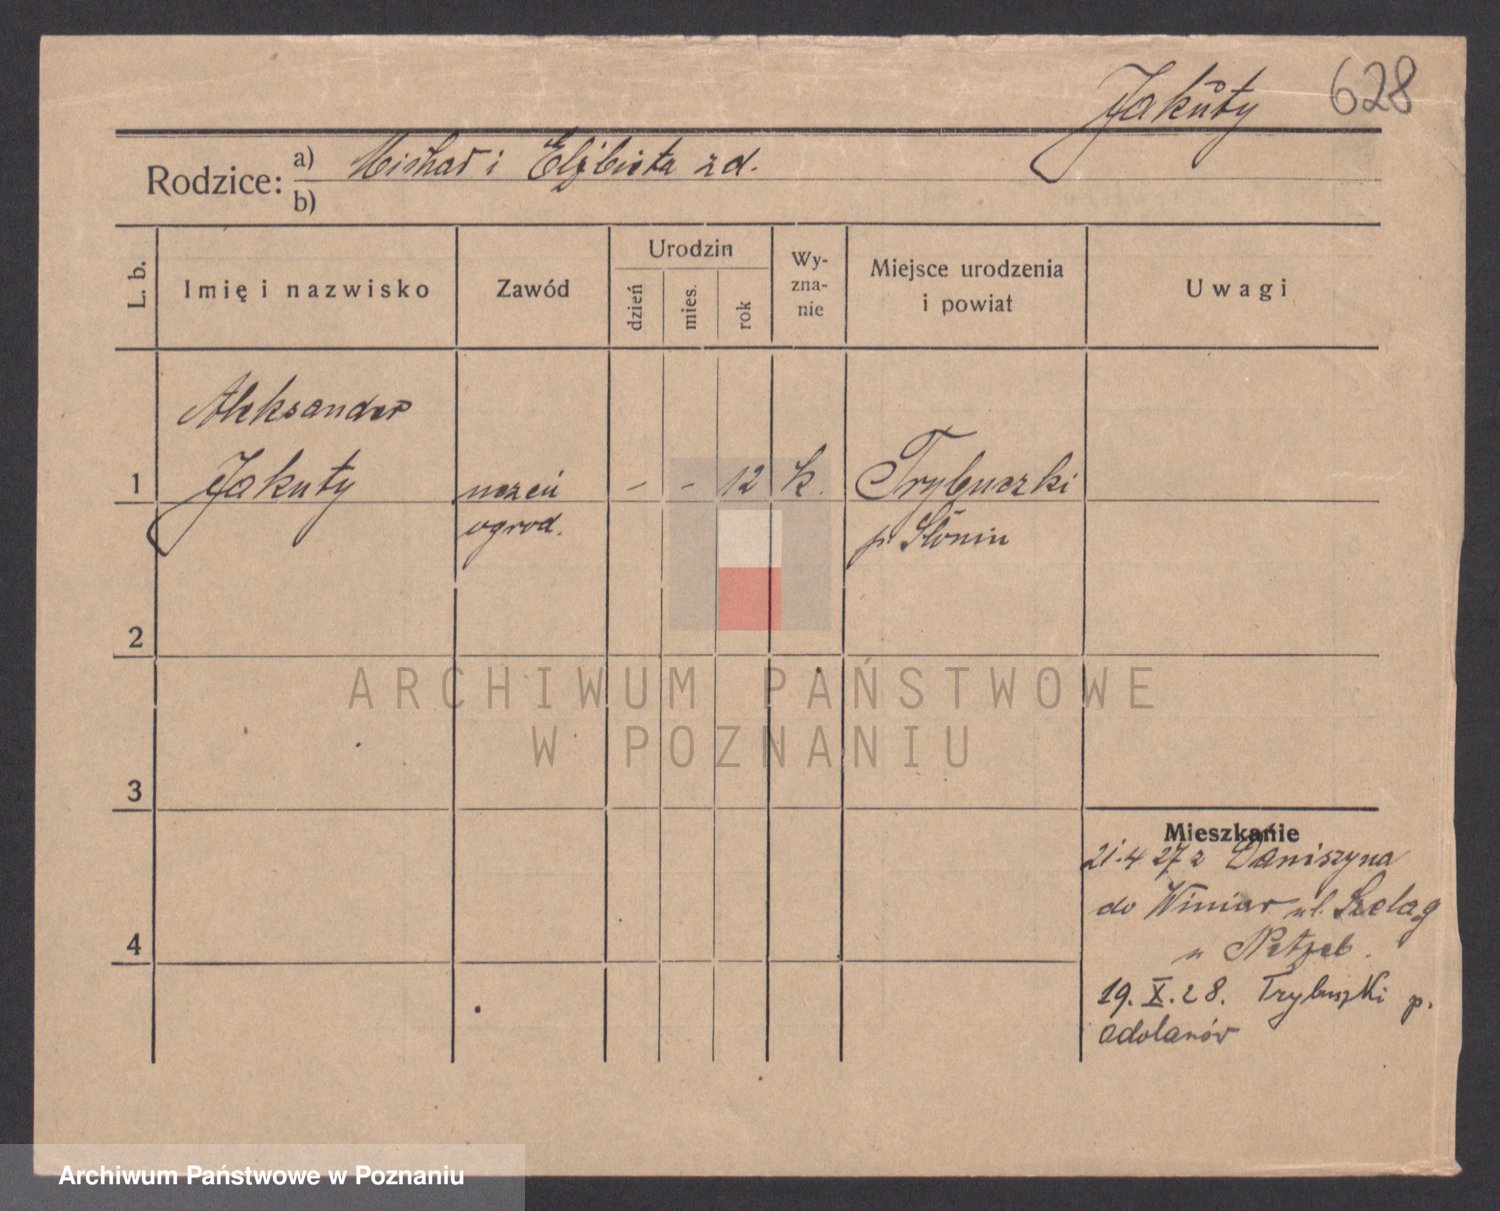 Jakuty 628
Rodzice: a) Michał i Elżbieta zd.
b)
L. b. Imię i nazwisko Zawód Urodzin dzień mies. rok Wy-zna-nie Miejsce urodzenia i powiat Uwagi
Aleksander
1 Jakuty uczeń - - 12 k. Trybuczki
ogrod. p. Słonin
2
ARCHIWUM PAŃSTWOWE
W POZNANIU
3
Mieszkanie
21.4 27 z Daniszyna
do Winiar ul. Szeląg
4
u
19. X. 28. Trybuszki p.
Adolanów
Archiwum Państwowe w Poznaniu